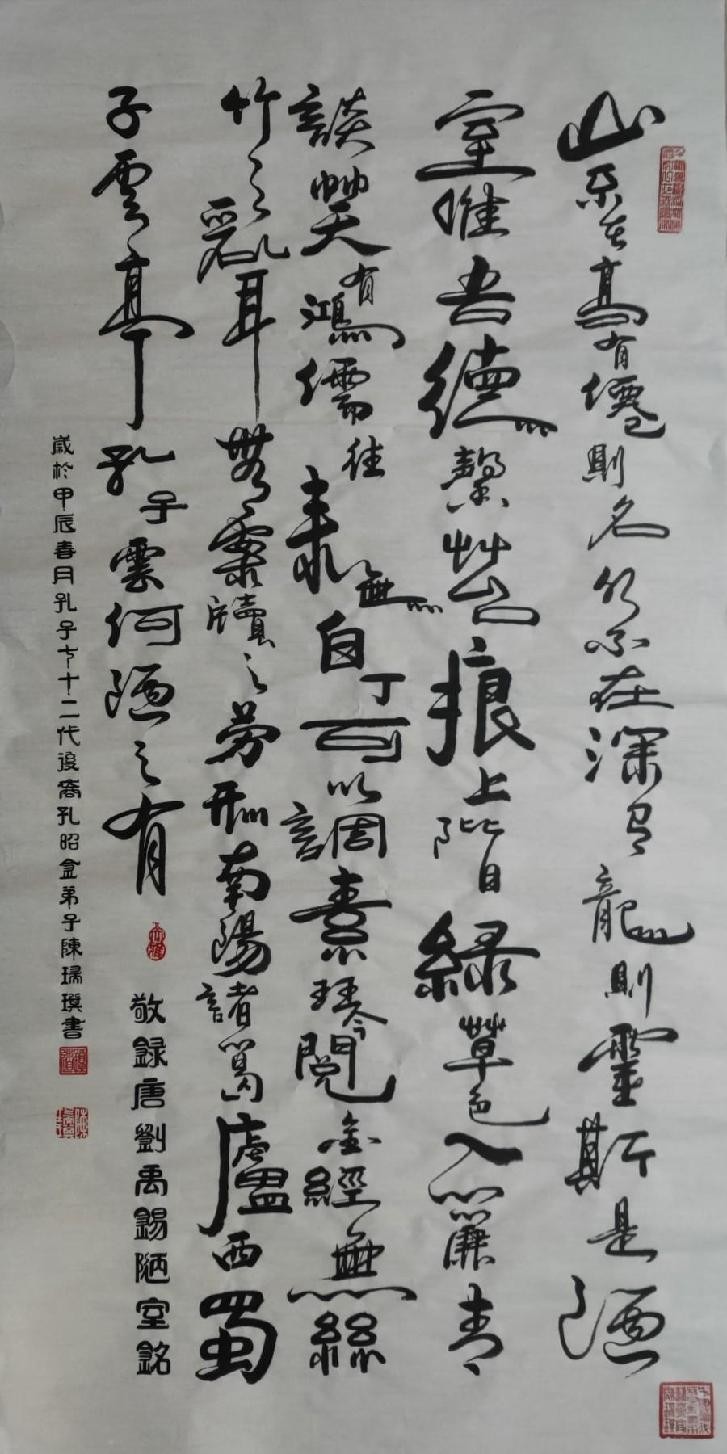 山不在高有僊則名水不在深有龍則靈斯是陋
室惟吾德馨苔痕上階自綠草色入簾青
談笑有鴻儒往來無白丁可以調素琴閱金經無絲
竹之亂耳無案牘之勞形南陽諸葛廬西蜀
子雲亭孔子雲何陋之有
敬録唐劉禹錫陋室銘
歲於甲辰春月孔子七十二代後裔孔昭金弟子陳瑞璞書